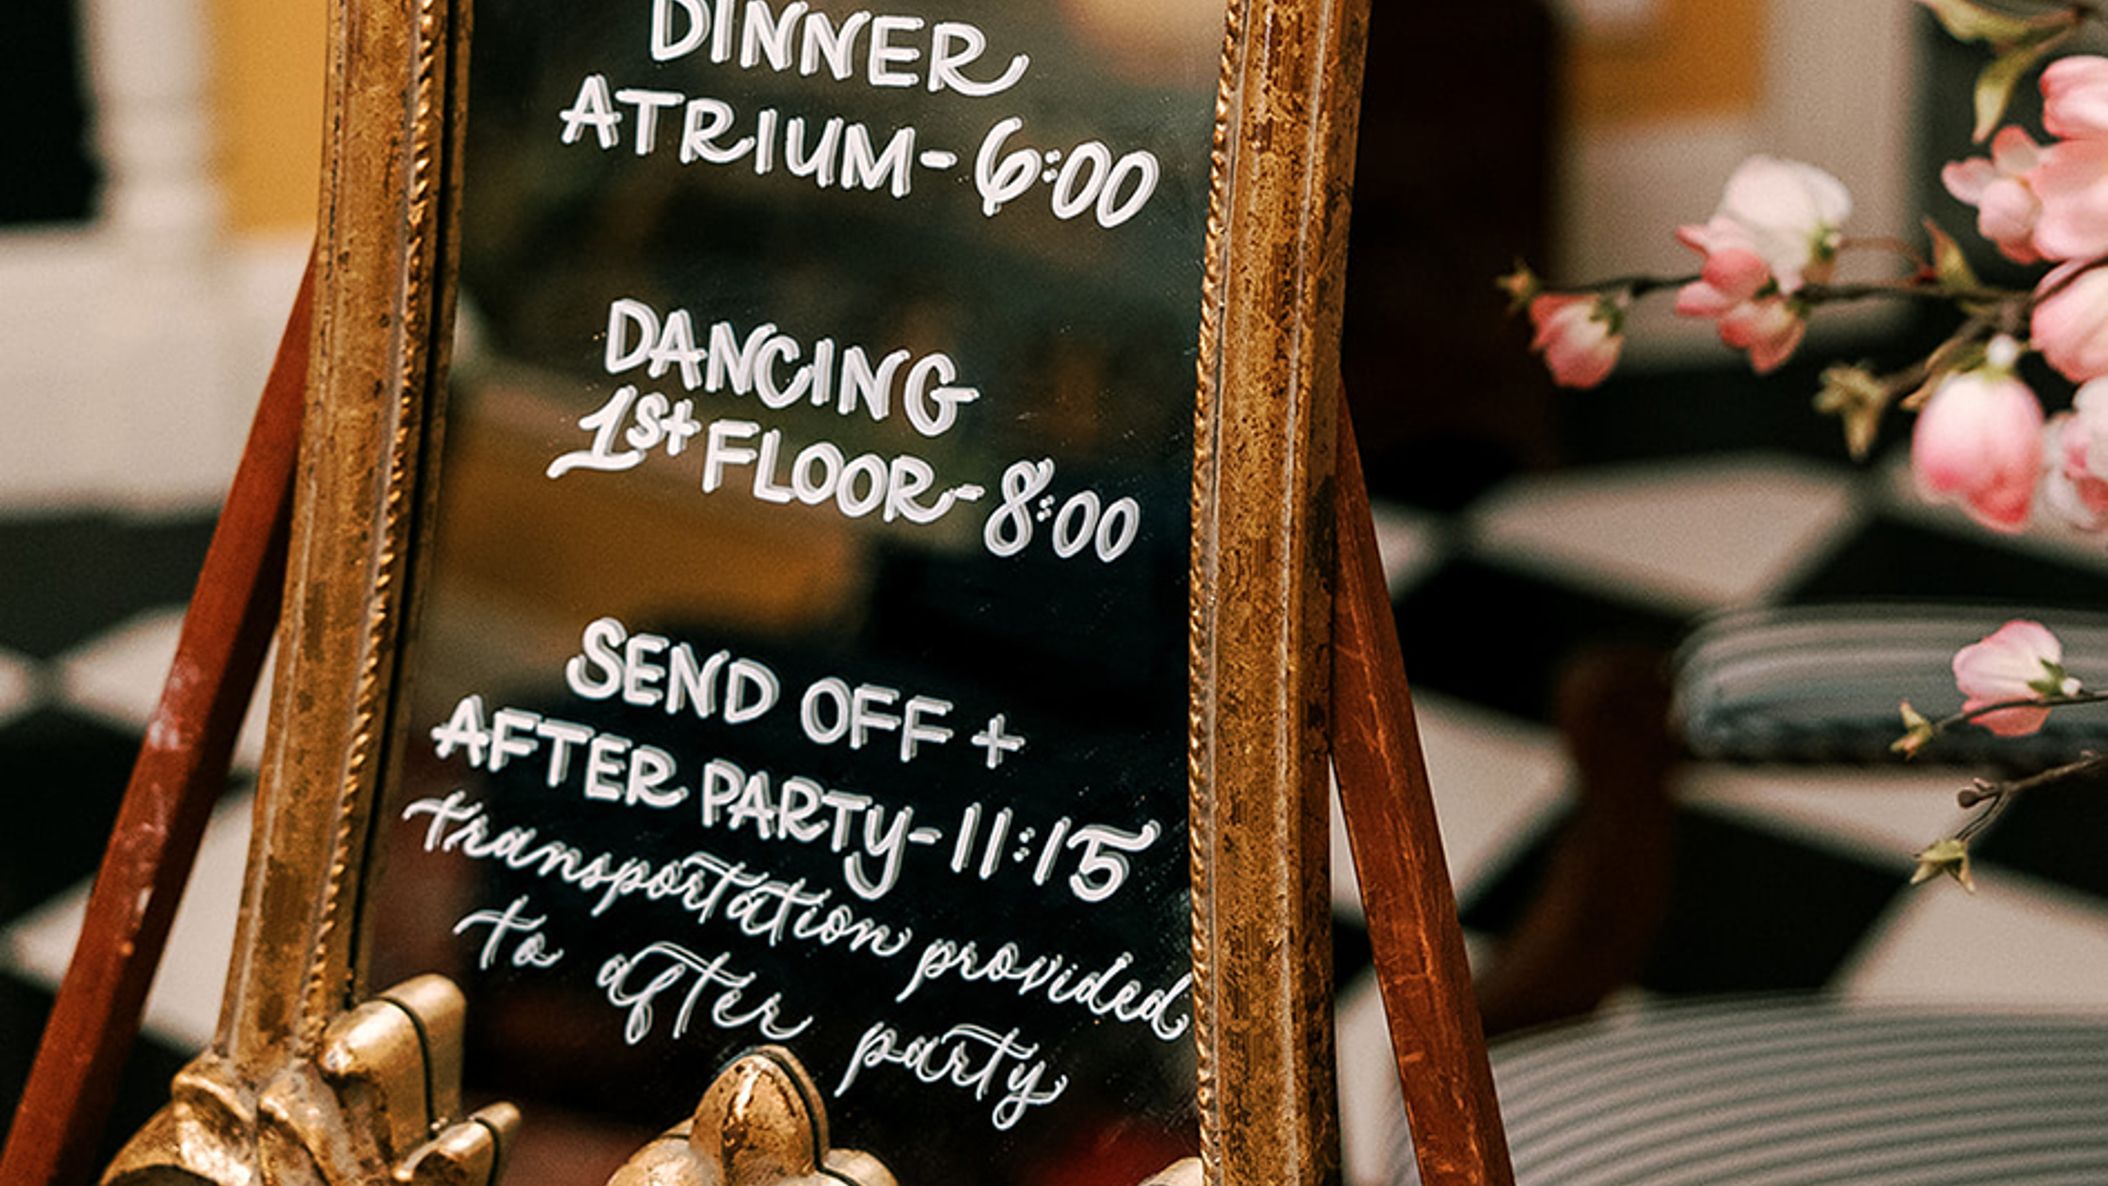 DINNER
ATRIUM-6:00
DANCING
1st FLOOR-8:00
SEND OFF +
AFTER PARTY-11:15
transportation provided
to after party